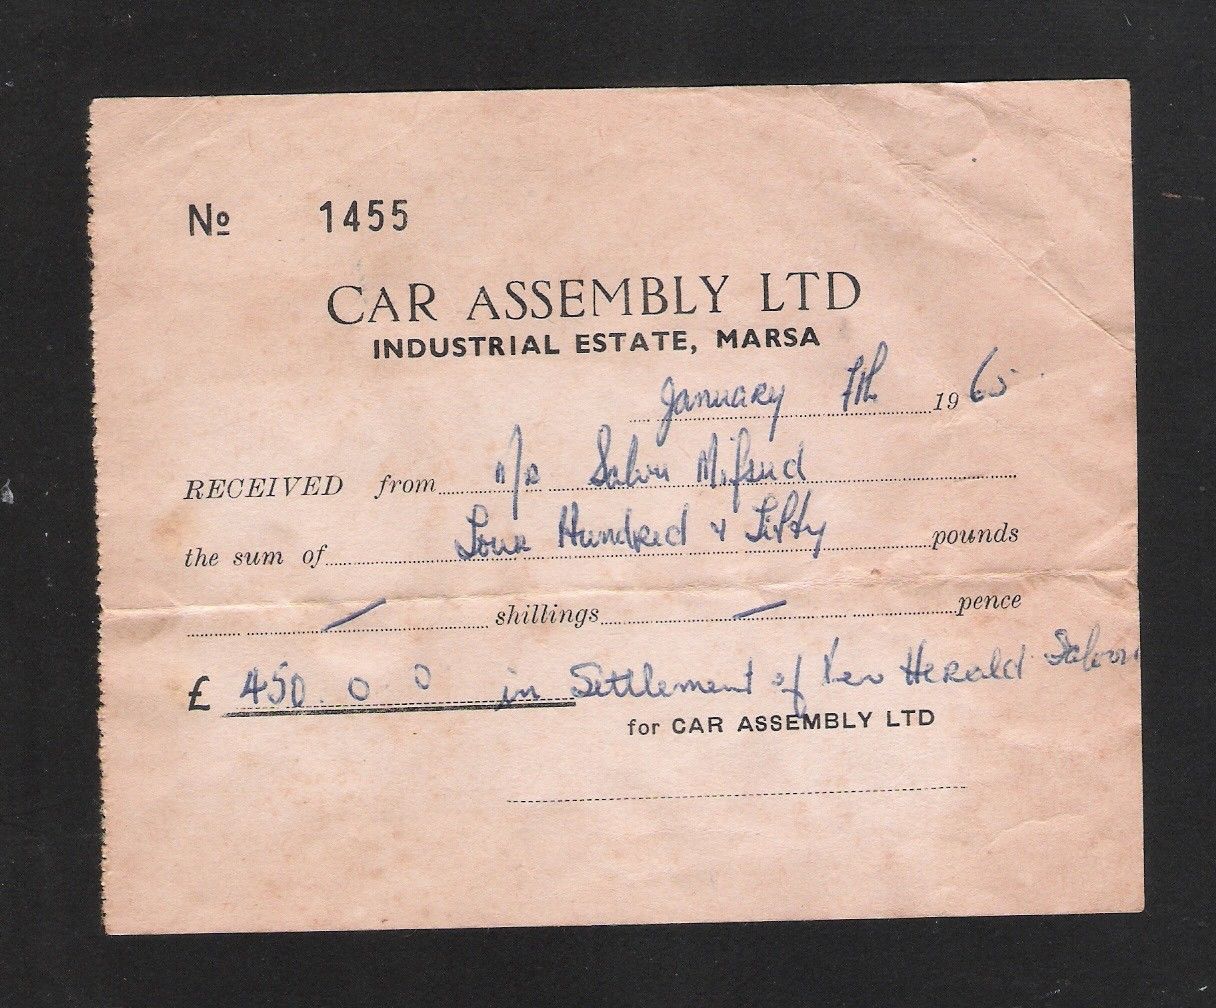 Nº 1455
CAR ASSEMBLY LTD
INDUSTRIAL ESTATE, MARSA
January 7th 1965
RECEIVED from Salvu Mifsud
the sum of Four Hundred & Fifty pounds
/ shillings / pence
£ 450 0 0 in Settlement of New Herald Saloon
for CAR ASSEMBLY LTD